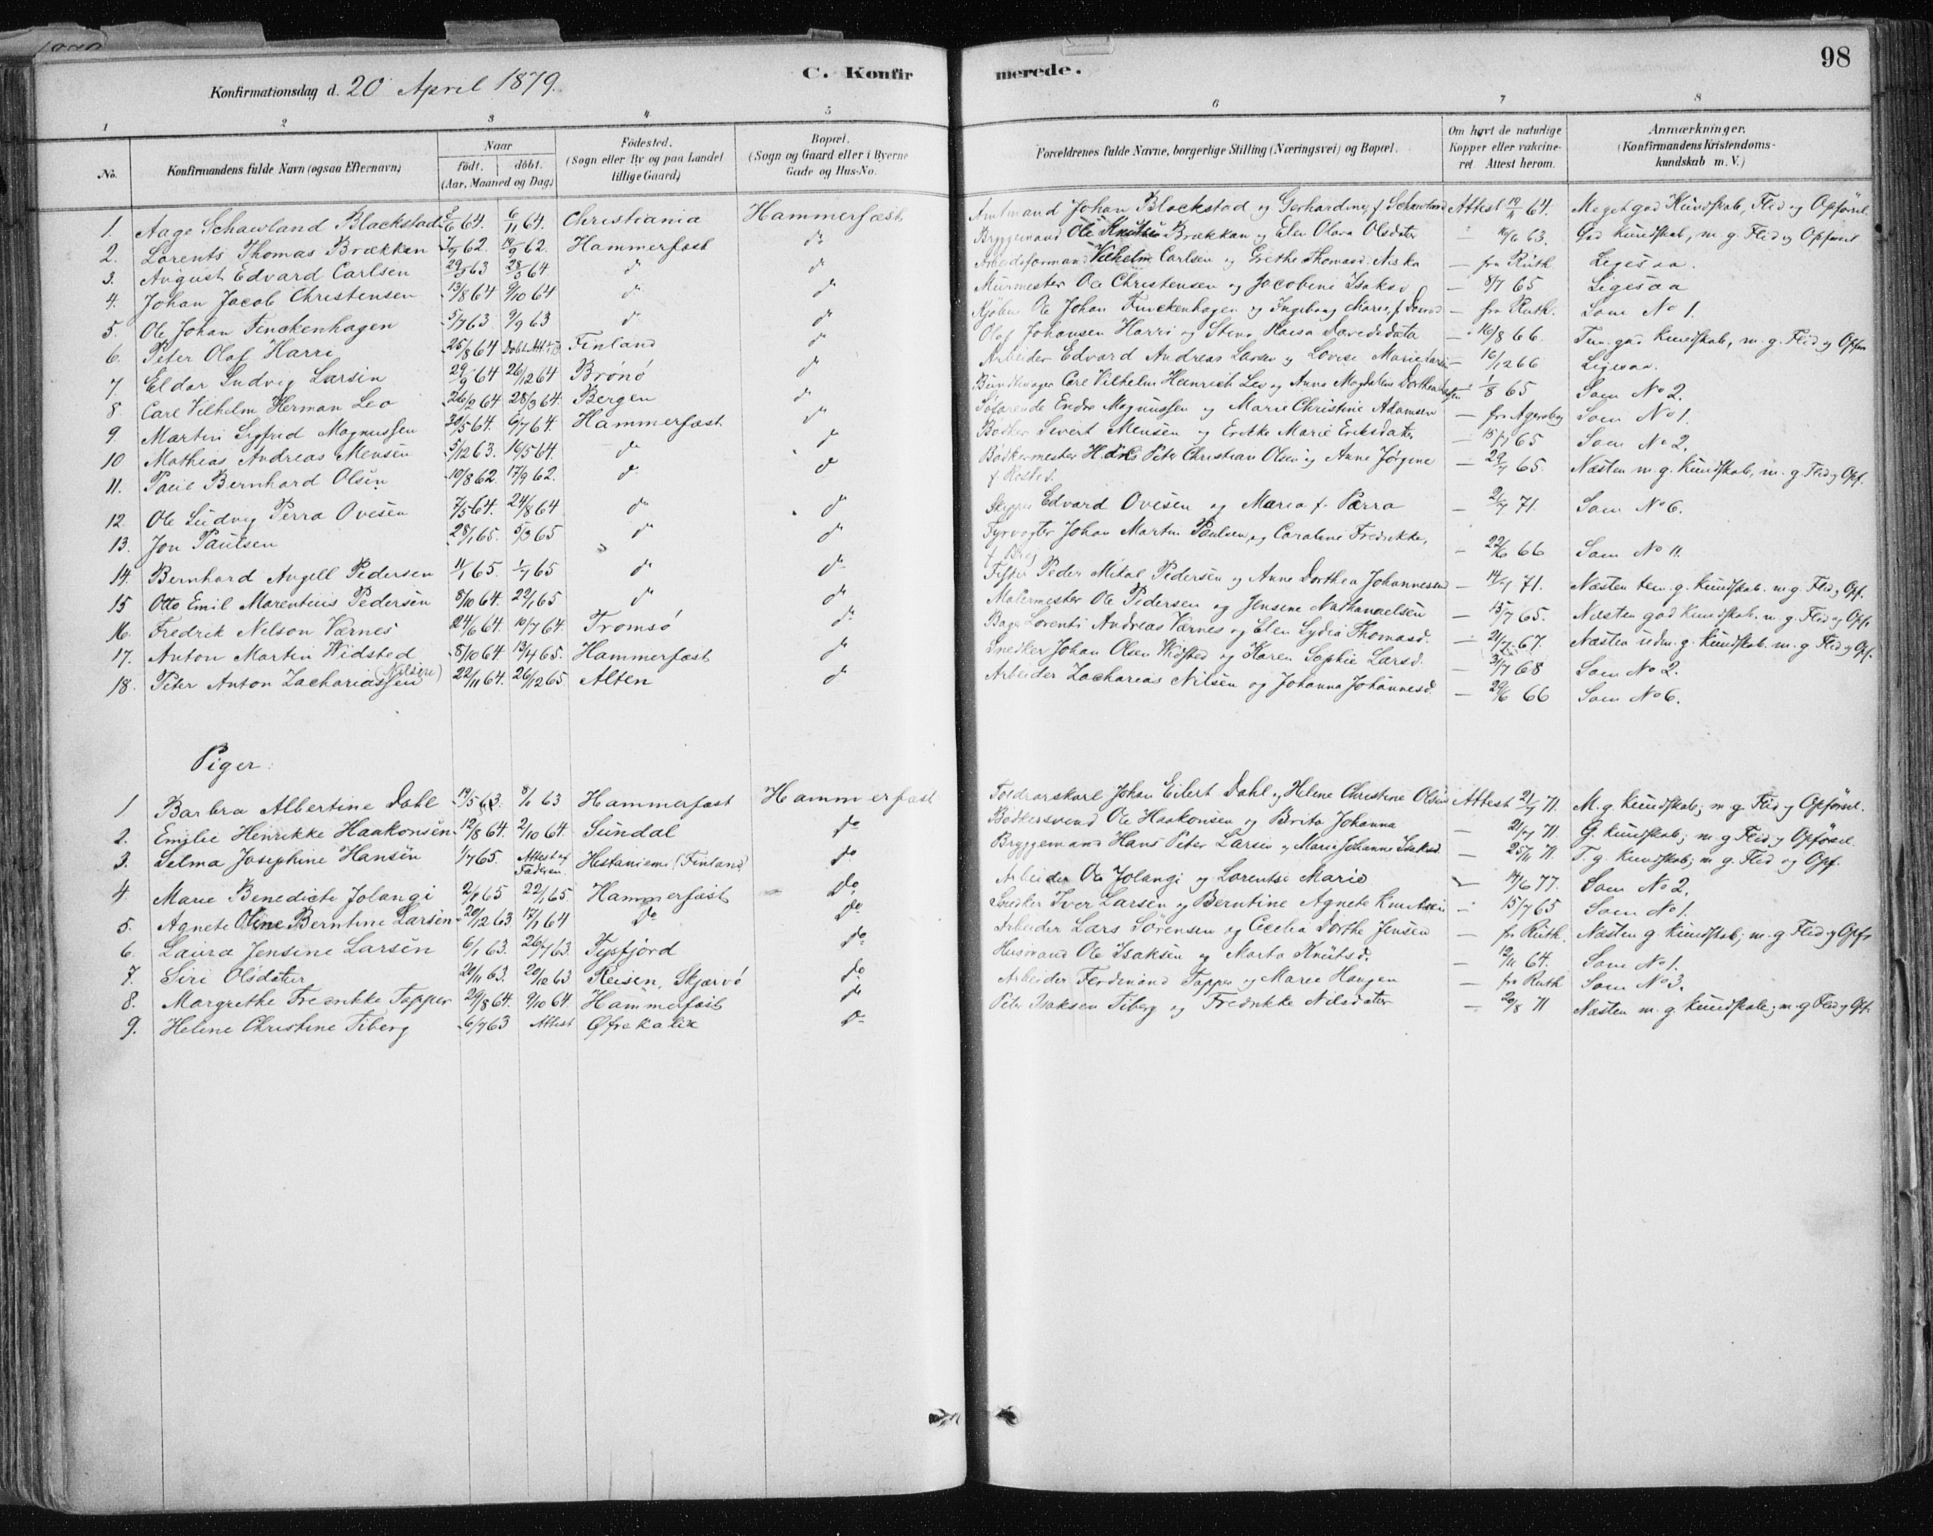 98
Konfirmationsdag d. 20 April 1879.
C. Konfirmerede.
1 2 3 4 5 6 7 8
No. Konfirmandens fulde Navn (ogsaa Efternavn) Naar født. døbt. (Aar, Maaned og Dag) Fødested. (Sogn eller By og paa Landet tillige Gaard) Bopæl. (Sogn og Gaard eller i Byerne Gade og Hus-No. Forældrenes fulde Navne, borgerlige Stilling (Næringsvei) og Bopæl. Om havt de naturlige Kopper eller vakcineret Attest herom. Anmærkninger. (Konfirmandens Kristendomskundskab m. V.)
1. Aage Schawland Blackstad 64. 6/11 64. Christiania Hammerfest Amtmand Johan Blackstad og Gerhardine f. Schawland Attest 64. Meget god Kundskab, Flid og Opførsel
2. Lorents Thomas Brækkan 62. 62. Hammerfest do Bryggemand Ole Knutsen Brækkan og Elen Olava Olsdater — 63. God Kundskab, m. g. Flid og Opførsel
3. August Edvard Carlsen 63 64. do do Arbeidsformand Vilhelm Carlsen og Grethe Thomasd. Niska — fra Ruth. Ligesaa.
4. Johan Jacob Christensen 13/8 64 9/10 64 do do Murmester Ole Christensen og Jacobine Isaksd — 8/7 65 Ligesaa
5. Ole Johan Finckenhagen 5/7 63 9/9 63 do do Kjøbm. Ole Johan Finckenhagen og Ingeborg Marie — fra Ruth. Som No 1.
6. Peter Olaf Harri 25/8 64 Finland do Olaf Johansen Harri og Stina Kaisa Davidsdater — 16/8 66. Tem. god Kundskab, m. g. Flid og Opfør
7. Eldar Ludvig Larsen 29/9 64 26/12 64 Brønø do Arbeider Edvard Andreas Larsen og Lovise Marie Larsen — 16/12 66 Ligesaa.
8. Carl Vilhelm Herman Leo 26/2 64 28/3 64 Bergen do Bundtmager Carl Vilhelm Heinrich Leo og Anne Magdalena Dorthea — 1/8 65 Som No 2.
9. Martin Sigfred Magnussen 30/5 64. 6/7 64 Hammerfest do Søfarende Endre Magnussen og Marie Christine Adamsen — fra Som No 1.
10 Mathias Andreas Mensen 5/12 63. 16/5 64 do do Bødker Sivert Mensen og Erikke Marie Eriksdater — 15/7 65 Som No 2.
11. Poul Bernhard Olsen 19/8 62 17/9 62. do do Bødkermester Peter Christian Olsen og Anne Jørgine — 65. Næsten m. g. Kundskab, m. g. Flid og Opf.
12 Ole Ludvig Perra Ovesen 7/5 64. 24/8 64 do do Skipper Edvard Ovesen og Maria f. Pærra — 71. Som No 6.
13. Jon Paulsen 28/1 65. 5/3 65 do do Fyrvogter Johan Martin Paulsen, og Caroline Fredrikke, — 22/6 66 Som No 11
14. Bernhard Angell Pedersen 65. 65 do do Fisker Peder Mikal Pedersen og Anne Dorthea Johannesd — 71. Næsten tem. g. Kundskab. m. g. Flid og Opf.
15 Otto Emil Morentius Pedersen 8/10 64. 22/1 65 do do Malermester Ole Pedersen og Jensine Nathanaelsen — 15/7 65. Næsten god Kundskab. m. g. Flid og Opf.
16. Fredrik Nilson Værnes 24/6 64 10/7 64. Tromsø do Bager Lorents Andreas Værnes og Elen Lydia Thomasd. — 21/7 67. Næsten udm. g. Kundskab. m. g Flid og Opf.
17. Anton Martin Widsted 8/10 64 13/4 65. Hammerfest do Snedker Johan Olsen Widsted og Karen Sophie Larsd. — 31/7 68 Som No 2.
18. Peter Anton Zachariassen (Nilsen) 22/11 64. 26/12 65 Alten do Arbeider Zacharias Nilsen og Johanna Johannesd. — 29/6 66 Som No 6.
Piger:
1 Barbra Albertine Dahl 19/5 63. 63 Hammerfest Hammerfest Johan Eilert Dahl og Helene Christine Olsen Attest 21/7 71. M. g. Kundskab; m. g. Flid og Opførsel.
2. Emilie Henrikke Haakonsen 12/8 64. 2/10 64. Sundal do Bødkersvend Ole Haakonsen og Brita Johanna — 21/7 71. G. Kundskab; m. g Flid og Opførsel
3. Selma Josephine Hansen 65. Attest af Faderen Hietaniemi (Finland) do Bryggemand Hans Peter Larsen og Marie Johanne Isaksd — 25/11 71. T. g. Kundskab; m. g. Flid og Opf.
4. Marie Benedicte Jolangi 65 22/1 65. Hammerfest do Arbeider Ole Jolangi og Lorentse Marie — 14/6 77. Som No 2.
5. Agnete Oline Berntine Larsen 20/12 63 17/1 64 do do Snedker Iver Larsen og Berntine Agnete Knutsen — 15/7 65 Som No 1.
6. Laura Jensine Larsen 6/1 63. 26/7 63. Tysfjord do Arbeider Lars Sørensen og Cecelia Dorthe Jensen — fr Ruth. Næsten g. Kundskab; m. g. Flid og Opfr
7. Siri Olsdater 20/11 63. 63 Reisen, Skjærvø do Husmand Ole Isaksen og Marta Knutsd. — 12/11 64. Som No 1.
8. Margrethe Fredrikke Tapper 29/8 64. 9/10 64. Hammerfest do Arbeider Ferdinand Tapper og Marie Haugen — fr Ruth Som No 3.
9. Helene Christine Tiberg 6/7 63 Attest Øfrekalix do Peter Isaksen Tiberg og Fredrikke Nilsdater — 20/8 71 Næsten m. g. Kundskab; m g Flid og Opf.